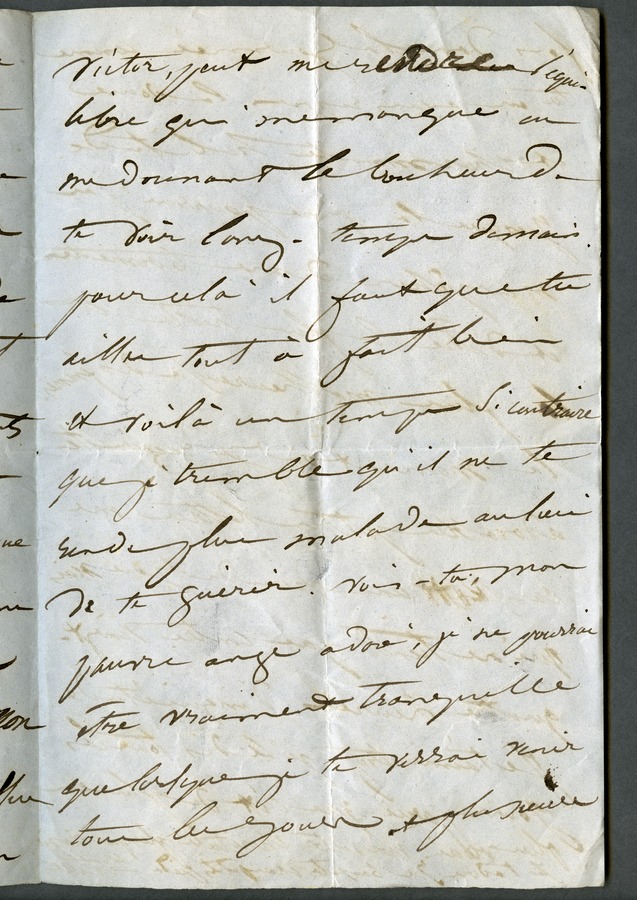 Victor, peut me rendre l'équi-
libre qui me manque en
me donnant le bonheur de
te voir long-temps demain.
pour cela il faut que tu
ailles tout à fait bien
et voilà un temps si contraire
que je tremble qu'il ne te
rende plus malade au lieu
de te guérir. Vois-tu, mon
pauvre ange adoré, je ne pourrai
être vraiment tranquille
que lorsque je te verrai venir
tous les jours et plusieurs